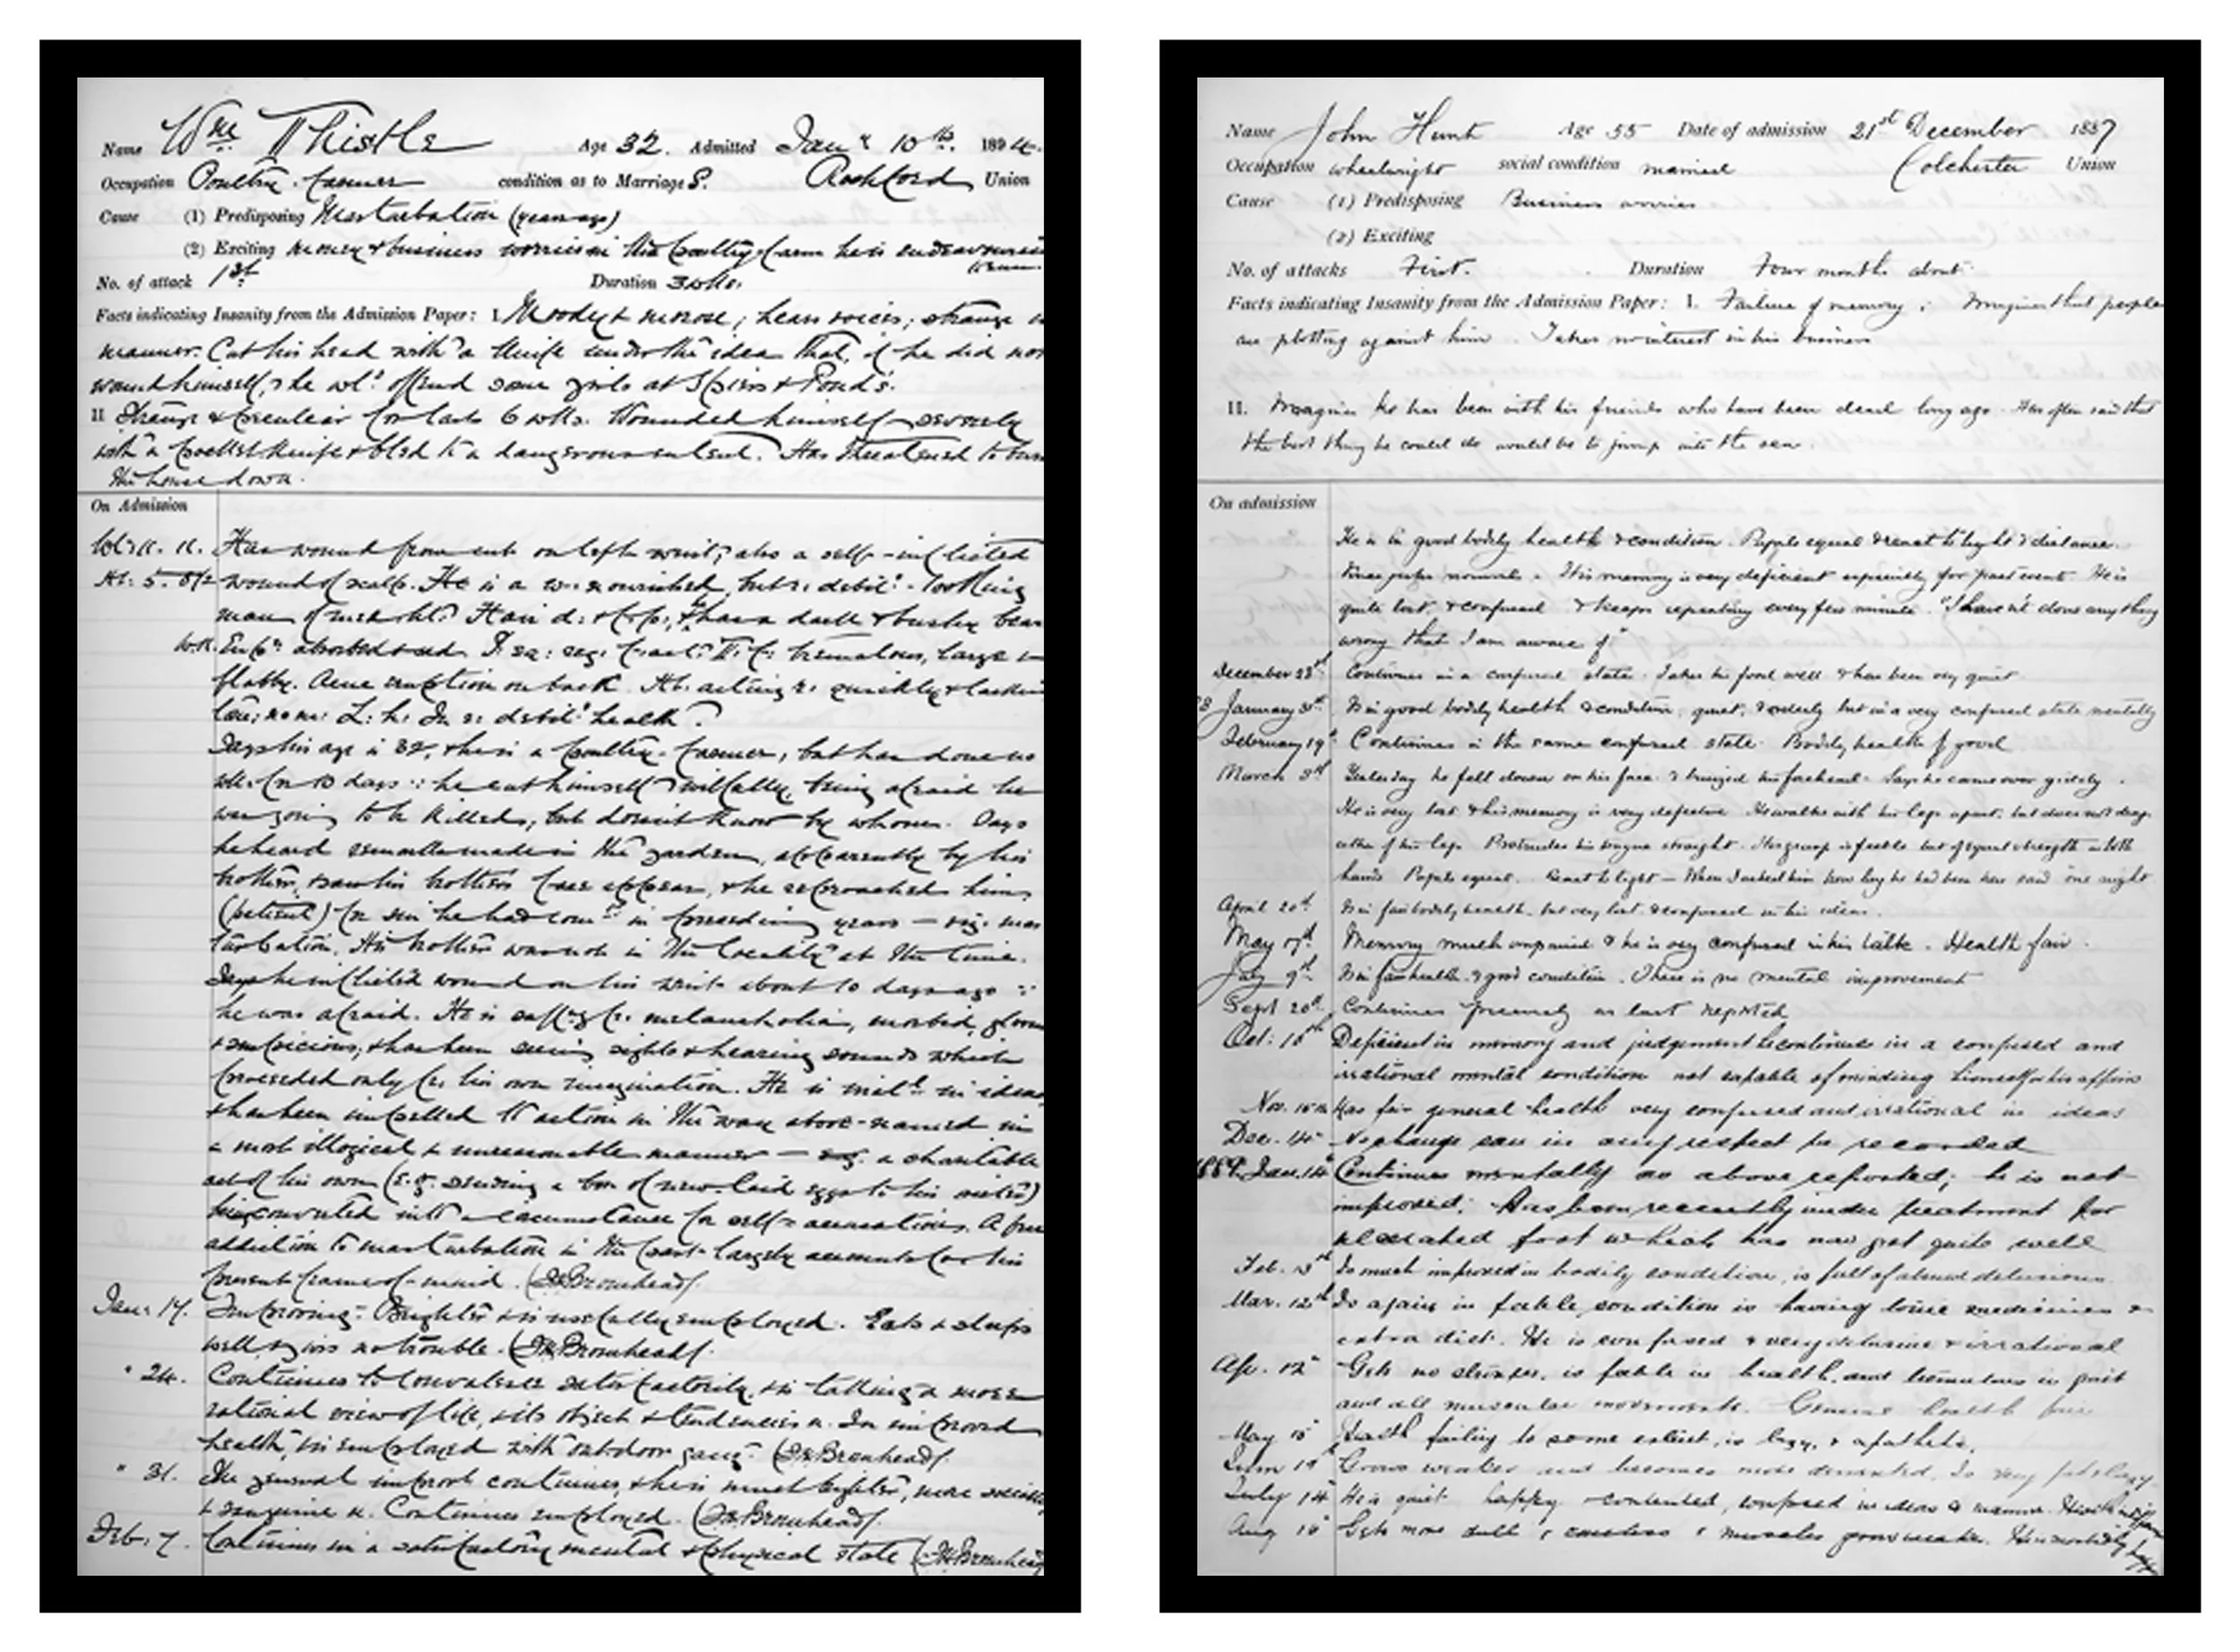 Name Wm Thistle Age 32. Admitted Jany 10th. 1894.
Occupation Poultry-farmer condition as to Marriage S. Rochford Union
Cause (1) Predisposing Masturbation (years ago)
(2) Exciting Money & business worries in the poultry-farm he is
No. of attack 1st Duration 3 wks.
Facts indicating Insanity from the Admission Paper: I Moody & morose; hears voices; strange in
manner. Cut his head with a knife under the idea that, if he did not
wound himself, he wld offend some girls at Spiers & Pond's.
II Strange & peculiar for last 6 wks. Wounded himself severely
with a pocket knife & bled to a dangerous extent. Has threatened to burn
the house down.
On Admission
Has wound from cut on left wrist; also a self-inflicted
wound of scalp. He is a nourished, but looking
man of Hair & has a dark & bushy bear
absorbed & sad. tremulous, large &
flabby. Acne eruption on back. acting quickly &
health.
Says his age is 32, & he is a poultry-farmer, but has done no
wk. for 10 days he cut himself wilfully, being afraid he
was going to be killed, but doesn't know by whom. Says
he heard remarks made in the garden, apparently by his
brother, & saw his brother's face appear, & he reproached him
(patient) for sin he had in preceding years — viz. mas
turbation. His brother was not in the locality at the time.
Says he inflicted wound on his wrist about 10 days ago
he was afraid. He is melancholia, morbid, gloomy
& suspicious; & has been seeing sights & hearing sounds which
proceeded only fr. his own imagination. He is in ideas
& has been impelled to action in the way above-named in
a most illogical & unreasonable manner — a charitable
act of his own (e.g. sending a box of new-laid eggs to his sister)
being converted into a circumstance for self-accusation. A
addiction to masturbation in the past largely accounts for his
present frame-of-mind.
Jan: 17. Improving. Brighter & is usefully employed. Eats & sleeps
well & gives no trouble.
" 24. Continues to convalesce satisfactorily, & is taking a more
rational view of life, & its object & tendencies In improved
health, is employed with outdoor gang.
" 31. The general improvt continues, & he is much brighter, more sociable
& sanguine Continues employed.
Feb. 7. Continues in a satisfactory mental & physical state
Name John Hunt Age 55 Date of admission 21st December 1887
Occupation wheelwright social condition married Colchester Union
Cause (1) Predisposing Business worries
(2) Exciting
No. of attacks First. Duration Four months about
Facts indicating Insanity from the Admission Paper: I. Failure of memory. Imagines that people
are plotting against him. Takes no interest in his business
II. Imagines he has been with his friends who have been dead long ago. Has often said that
the best thing he could do would be to jump into the sea.
On admission
He is in good bodily health & condition. Pupils equal & react to light & distance.
Knee jerks normal. His memory is very deficient especially for past events. He is
quite lost, & confused & keeps repeating every few minutes. "I haven't done anything
wrong that I am aware of"
December 28th Continues in a confused state. Takes his food well & has been very quiet
January 31st Is in good bodily health & condition, quiet, & orderly but in a very confused state mentally
February 19th Continues in the same confused state. Bodily health good
March 3rd Yesterday he fell down on his face & bruised his forehead. Says he came over giddy.
He is very lost & his memory is very defective. He walks with his legs apart, but does not drag
either of his legs. Protrudes his tongue straight. His grasp is feeble but of equal strength in both
hands. Pupils equal. React to light — When I asked him how long he had been here said one night
April 20th Is in fair bodily health, but very lost, & confused in his ideas.
May 17th Memory much impaired & he is very confused in his talk. Health fair.
July 9th Is in fair health & good condition. There is no mental improvement
Sept 20th Continues precisely as last reported
Oct: 10th Deficient in memory and judgement he continues in a confused and
irrational mental condition not capable of minding himself or his affairs
Nov. 15th Has fair general health very confused and irrational in ideas
Dec. 14th No change seen in any respect to recorded
1889. Jan. 14th Continues mentally as above reported; he is not
improved. Has been recently under treatment for
ulcerated foot which has now got quite well
Feb. 13th Is much improved in bodily condition, is full of absurd delusions.
Mar. 12th Is again in feeble condition is having tonic medicines &
extra diet. He is confused & very delusive & irrational
Apr. 12th Gets no stronger, is feeble in health, and tremulous in gait
and all muscular movements. General health fair
May 15 Health failing to some extent, is lazy, & apathetic.
June 19th Grows weaker and becomes more demented. Is very
July 14th He is quiet happy contented, confused in ideas & manner.
Aug 10th Gets more dull & careless & muscles grow weaker. He is